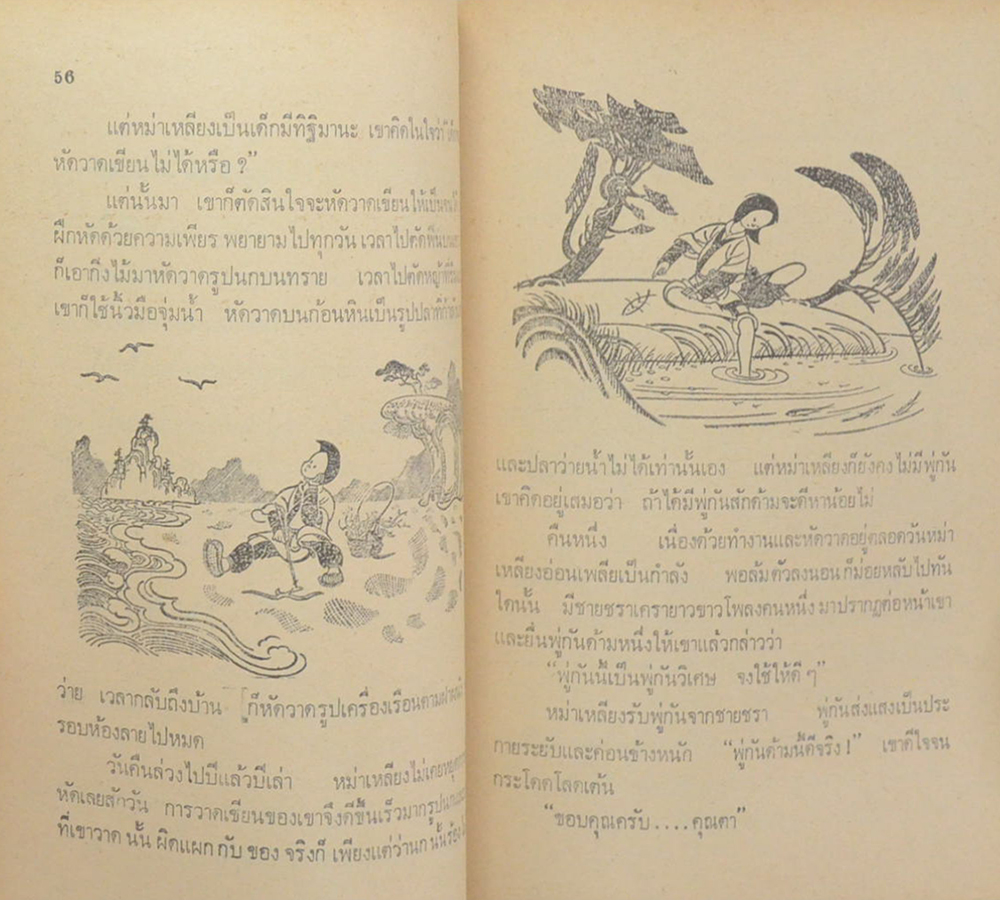 56
แต่หม่าเหลียงเป็นเด็กมีทิฐิมานะ เขาคิดในใจว่า
หัดวาดเขียนไม่ได้หรือ ?”
แต่นั้นมา เขาก็ตัดสินใจจะหัดวาดเขียนให้เป็น
ฝึกหัดด้วยความเพียร พยายามไปทุกวัน เวลาไปตัดฟืน
ก็เอากิ่งไม้มาหัดวาดรูปนกบนทราย เวลาไปตัดหญ้า
เขาก็ใช้นิ้วมือจุ่มน้ำ หัดวาดบนก้อนหินเป็นรูปปลาที่
ว่าย เวลากลับถึงบ้าน ก็หัดวาดรูปเครื่องเรือนตาม
รอบห้องลายไปหมด
วันคืนล่วงไปปีแล้วปีเล่า หม่าเหลียงไม่เคย
หัดเลยสักวัน การวาดเขียนของเขาจึงดีขึ้นเร็วมาก
ที่เขาวาด นั้น ผิดแผก กับ ของ จริงก็ เพียงแต่ว่านก นั้น
และปลาว่ายน้ำไม่ได้เท่านั้นเอง แต่หม่าเหลียงก็ยังคงไม่มีพู่กัน
เขาคิดอยู่เสมอว่า ถ้าได้มีพู่กันสักด้ามจะดีหาน้อยไม่
คืนหนึ่ง เนื่องด้วยทำงานและหัดวาดอยู่ตลอดวันหม่า
เหลียงอ่อนเพลียเป็นกำลัง พอล้มตัวลงนอนก็ม่อยหลับไปทัน
ใดนั้น มีชายชราเครายาวขาวโพลงคนหนึ่ง มาปรากฏต่อหน้าเขา
และยื่นพู่กันด้ามหนึ่งให้เขาแล้วกล่าวว่า
“พู่กันนี้เป็นพู่กันวิเศษ จงใช้ให้ดี ๆ”
หม่าเหลียงรับพู่กันจากชายชรา พู่กันส่งแสงเป็นประ
กายระยับและค่อนข้างหนัก “พู่กันด้ามนี้ดีจริง !” เขาดีใจจน
กระโดดโลดเต้น
“ขอบคุณครับ . . . . คุณตา”